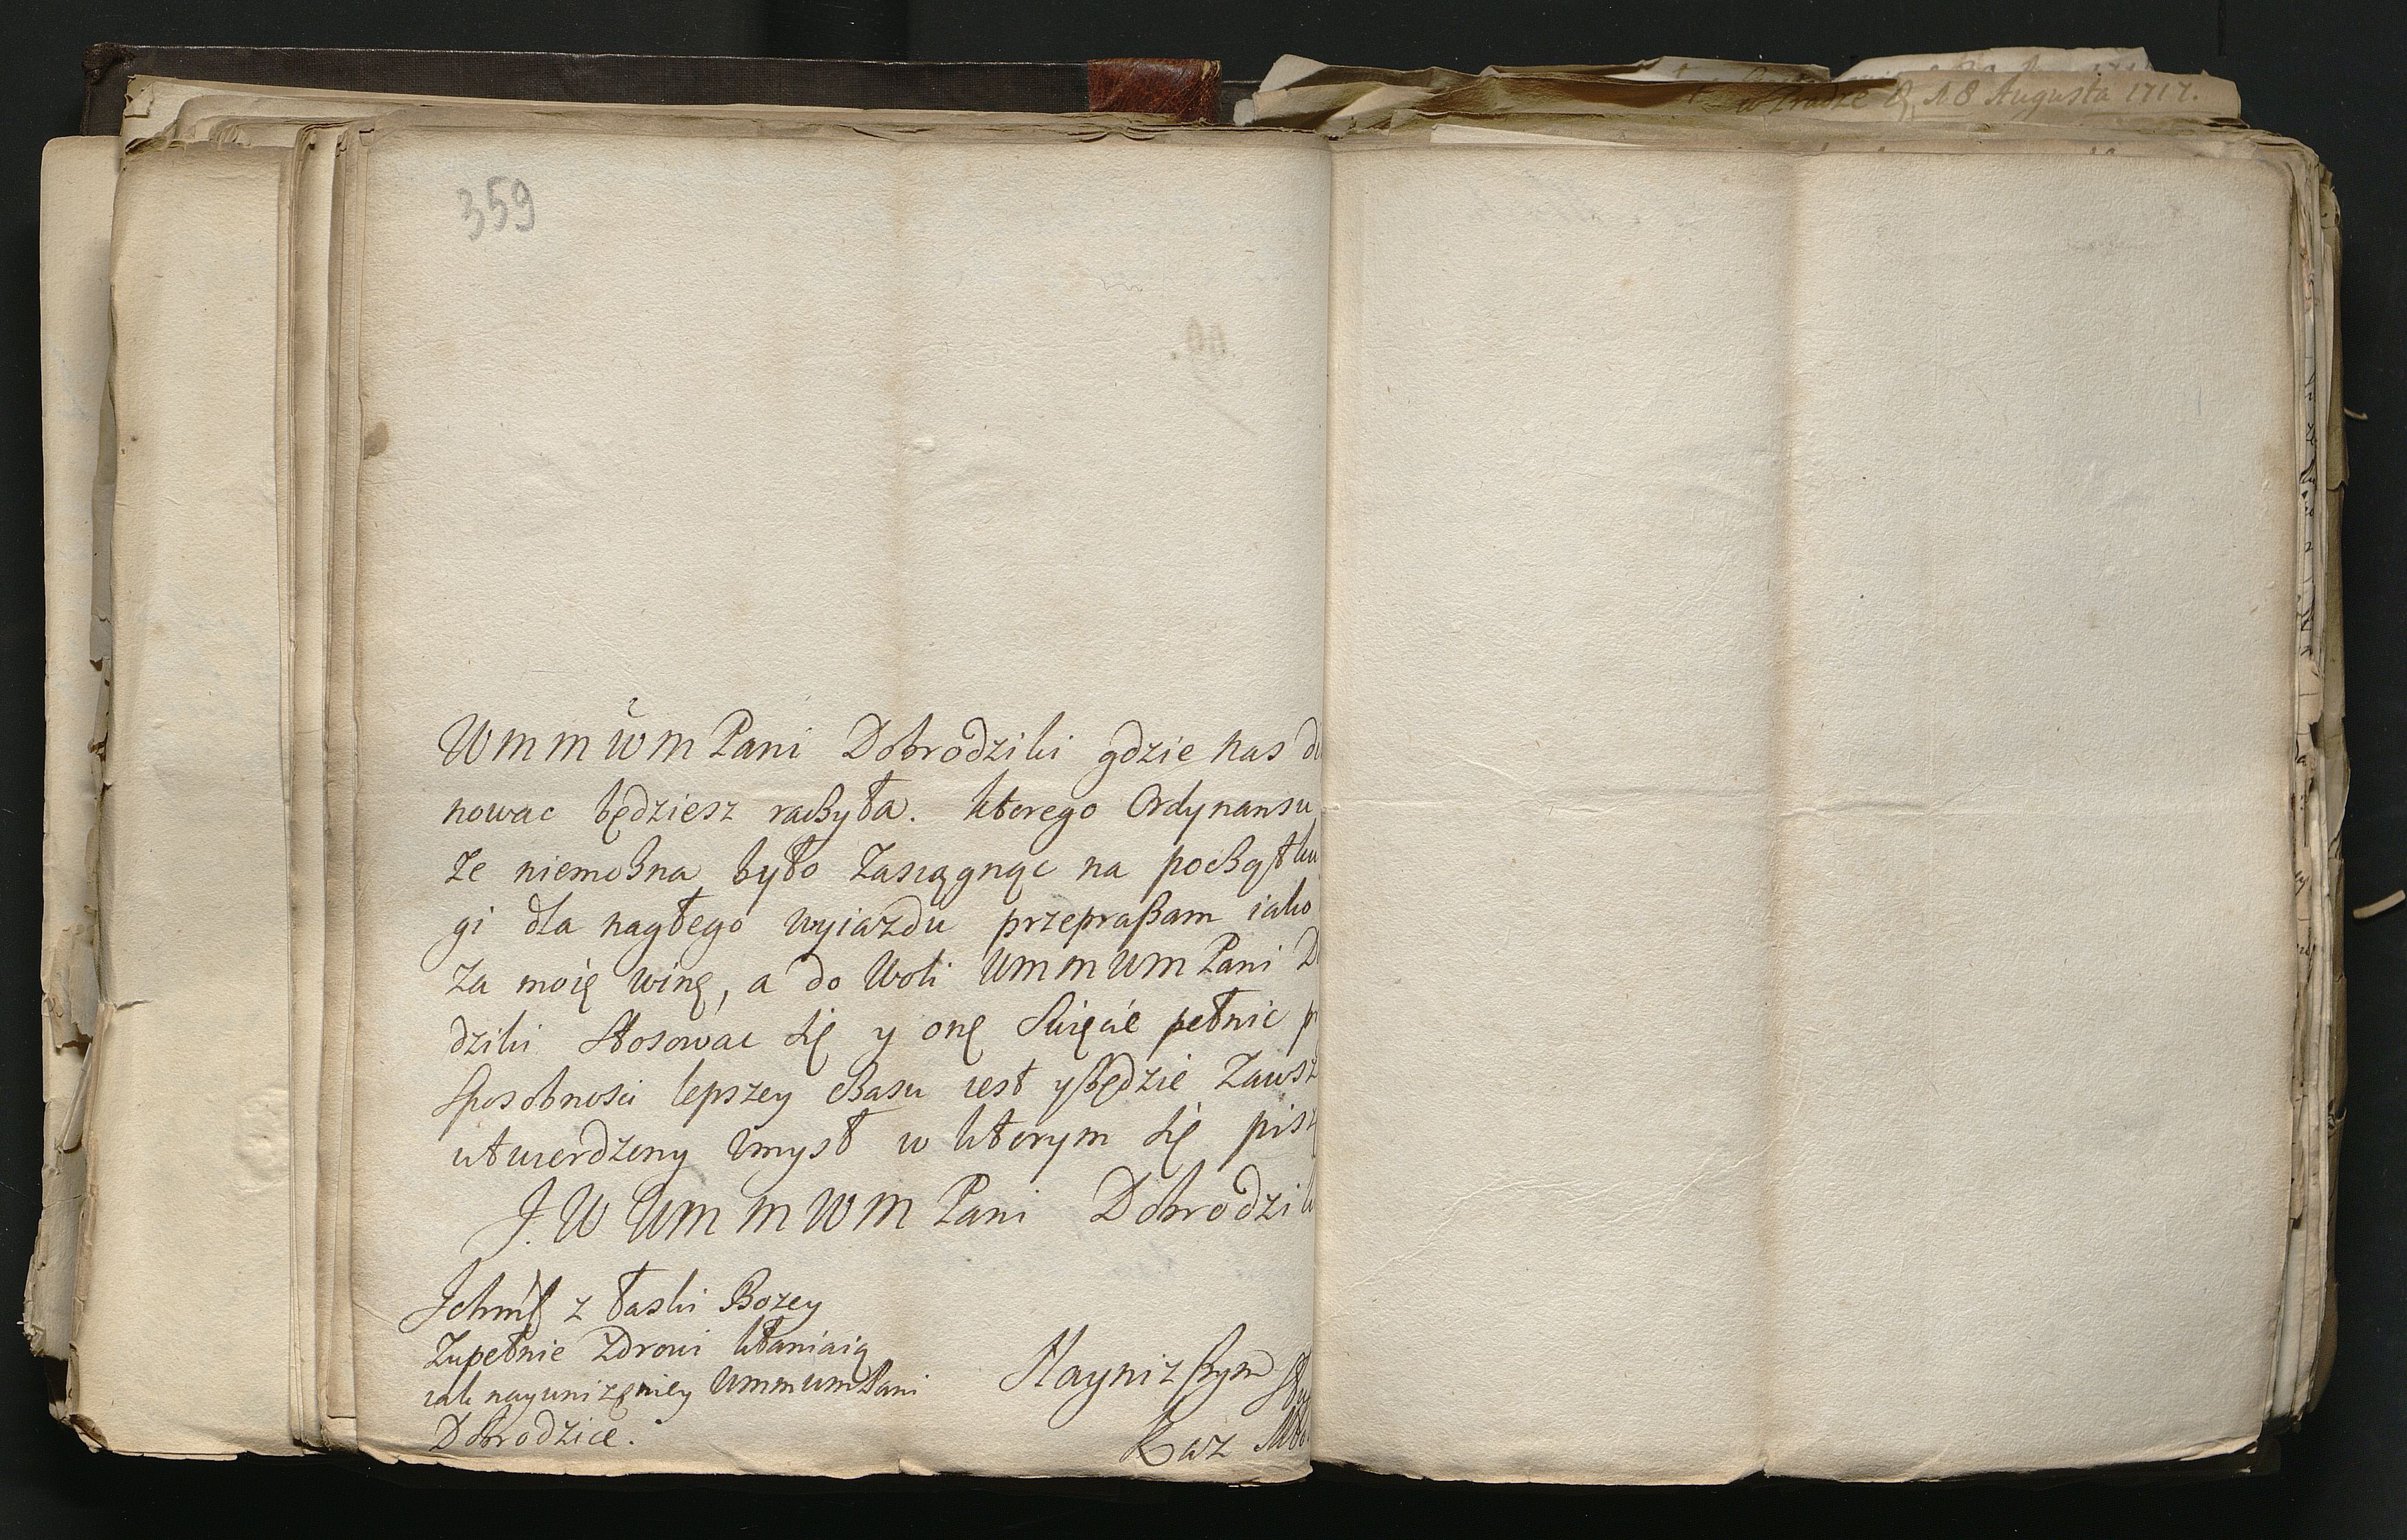 w Pradze d. 18 Augusta 1717.
359
WmmWm Pani Dobrodziki gdzie nas
nowac będziesz raczyła. ktorego Ordynansu
że niemożna było zasiągnąc na początku
gi dla nagłego wyiazdu przepraßam iako
za moię winę, a do woli WmmWm Pani
dziki stosowac się y onę święcie pełnic
sposobnosci lepszey czasu iest y będzie zawsz
utwierdzony zmysł w ktorym się piszę
J. W WmmWm Pani Dobrodzik
Ichmć z łaski Bozey
zupełnie zdrowi kłaniaią
iak nayunizeniey WmmWm Pani
Dobrodzice.
Naynizßym
Kaz